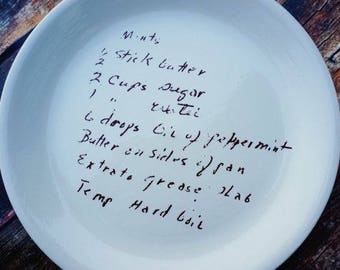 Mints
1/2 Stick butter
2 Cups Sugar
1 "
6 drops Oil of Peppermint
Butter on sides of pan
Extrato grease Slab
Temp Hard boil